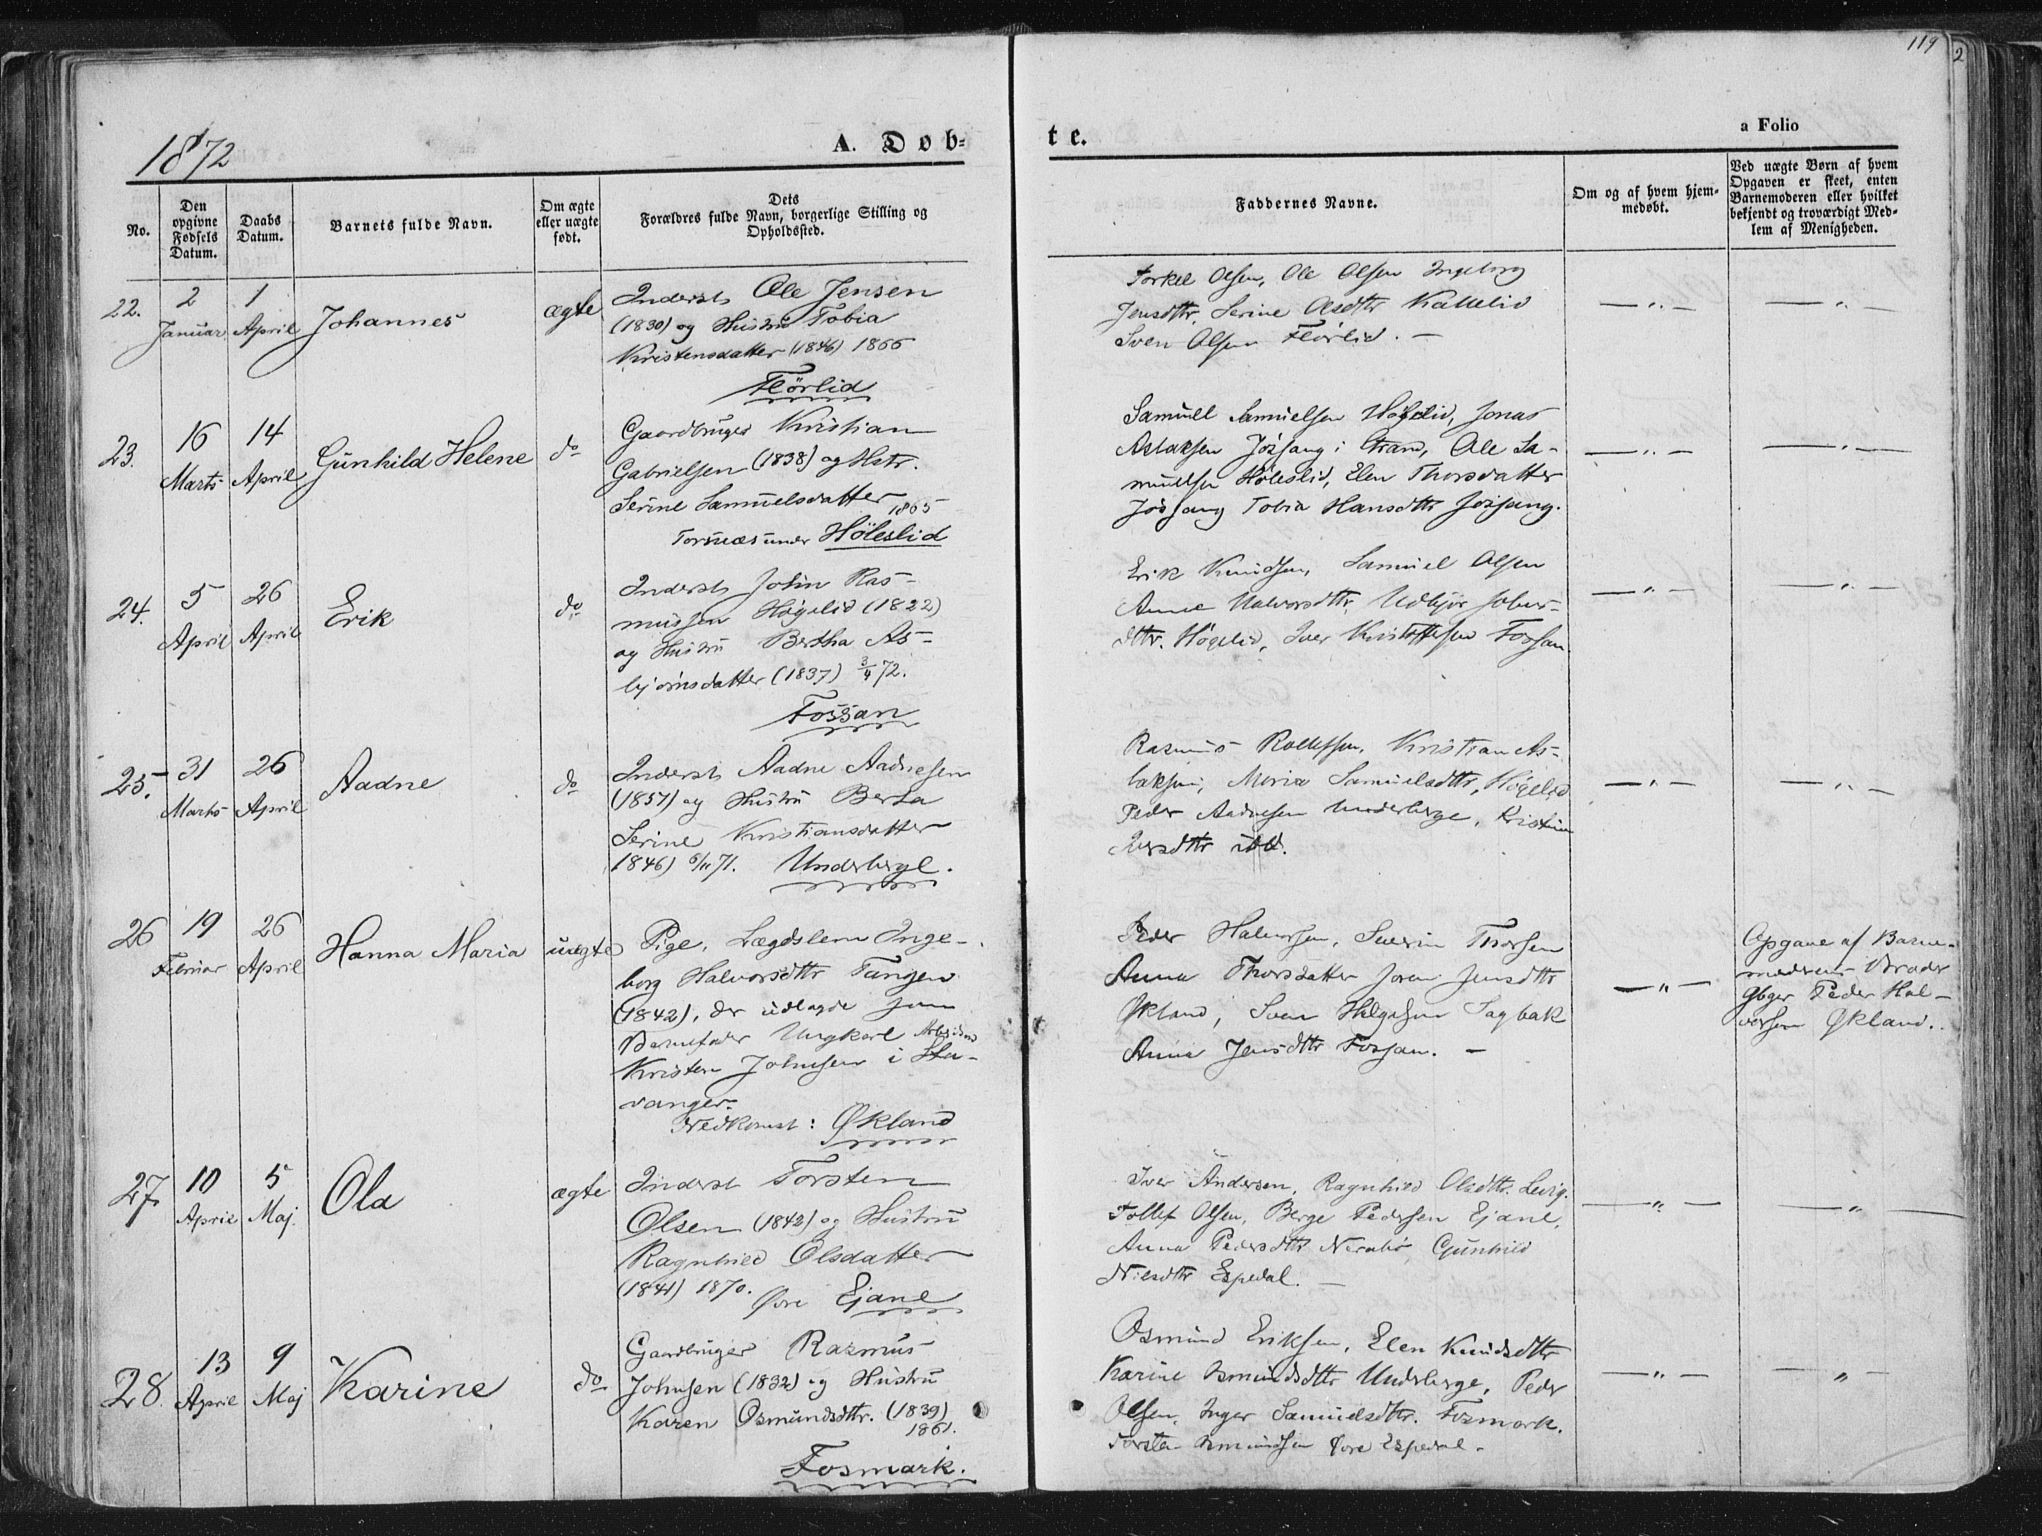 119
2
1872
A. Dob-
te.
a Folio
No.
Den
opgivne
Fødsels
Datum.
Daabs
Datum.
Barnets fulde Navn.
Om ægte
eller uægte
født.
Dets
Forældres fulde Navn, borgerlige Stilling og
Opholdssted.
Faddernes Navne.
Om og af hvem hjem-
medøbt.
Ved uægte Børn af hvem
Opgaven er skeet, enten
Barnemoderen eller hvilket
bekjendt og troværdigt Med-
lem af Menigheden.
22.
2
Januar
1
April
Johannes
ægte
Inderst Ole Jensen
(1830) og Hustru Tobia
Kristensdatter (1846) 1866
Flörlid
Torkel Olsen, Ole Olsen Ingeborg
Jensdtr, Serine Olsdtr Kallelid
Sven Olsen Flörlid. —
— „ —
— „ —
23.
16
Marts
14
April
Gunhild Helene
do
Gaardbruger Kristian
Gabrielsen (1838) og Hstr.
Serine Samuelsdatter
1865
Torsnæs under Höleslid
Samuel Samuelsen Högelid, Jonas
Aslaksen Jösang i Strand, Ole Sa-
muelsen Höleslid, Elen Thorsdatter
Jössang Tobia Hansdtr Jössang.
— „ —
— „ —
24.
5
April
26
April
Erik
do
Inderst John Ras-
mussen Högelid (1822)
og Hustru Bertha As-
björnsdatter (1837) 3/4 72.
Fossan
Erik Knudsen, Samuel Olsen
Anne Halvorsdtr,
dtr. Högelid, Iver Kristoffersen Fossan
— „ —
— „ —
25.
31
Marts
26
April
Aadne
do
Inderst Aadne Aadnesen
(1857) og Hustru Berta
Serine Kristiansdatter
1846) 5/11 71. Underberge.
Rasmus Rollefsen, Kristian As-
laksen, Maria Samuelsdtr, Högelid
Peder Aadnesen Underberge, Kristine
Iversdtr ibd.
— „ —
— „ —
26
19
Februar
26
April
Hanna Maria
uægte
Pige, Lægdslem Inge-
borg Halvorsdtr Tangen
(1842), der udlagde som
Barnefader Ungkarl Arbeidsmd
Kristen Johnsen i Sta-
vanger.
Nedkomst: Økland
Peder Halvorsen, Severin Thorsen
Anna Thorsdatter Joren Jensdtr
Økland, Sven Helgesen Sagbak
Anna Jensdtr Fossan. —
— „ —
Opgave af Barne-
moderens Broder
Gbger Peder Hal-
vorsen Økland.
27
10
April
5
Maj.
Ola
ægte
Inderst Torsten
Olsen (1842) og Hustru
Ragnhild Olsdatter
(1841) 1870.
Øvre Ejane
Iver Andersen, Ragnhild Olsdtr. Levig.
Tollef Olsen, Berge Pedersen Ejane,
Anna Pedersdtr Nerabö Gunhild
Nilsdtr Espedal. —
— „ —
— „ —
28.
13
April
9
Maj
Karine
do
Gaardbruger Rasmus
Johnsen (1832) og Hustru
Karen Osmundsdtr. (1839)
1861.
Fosmark.
Osmund Eriksen, Elen Knudsdtr
Karine Osmundsdtr Underberge, Peder
Olsen, Inger Samuelsdtr. Fosmark.
Torsten Osmundsen Øvre Espedal. -
— „ —
— „ —